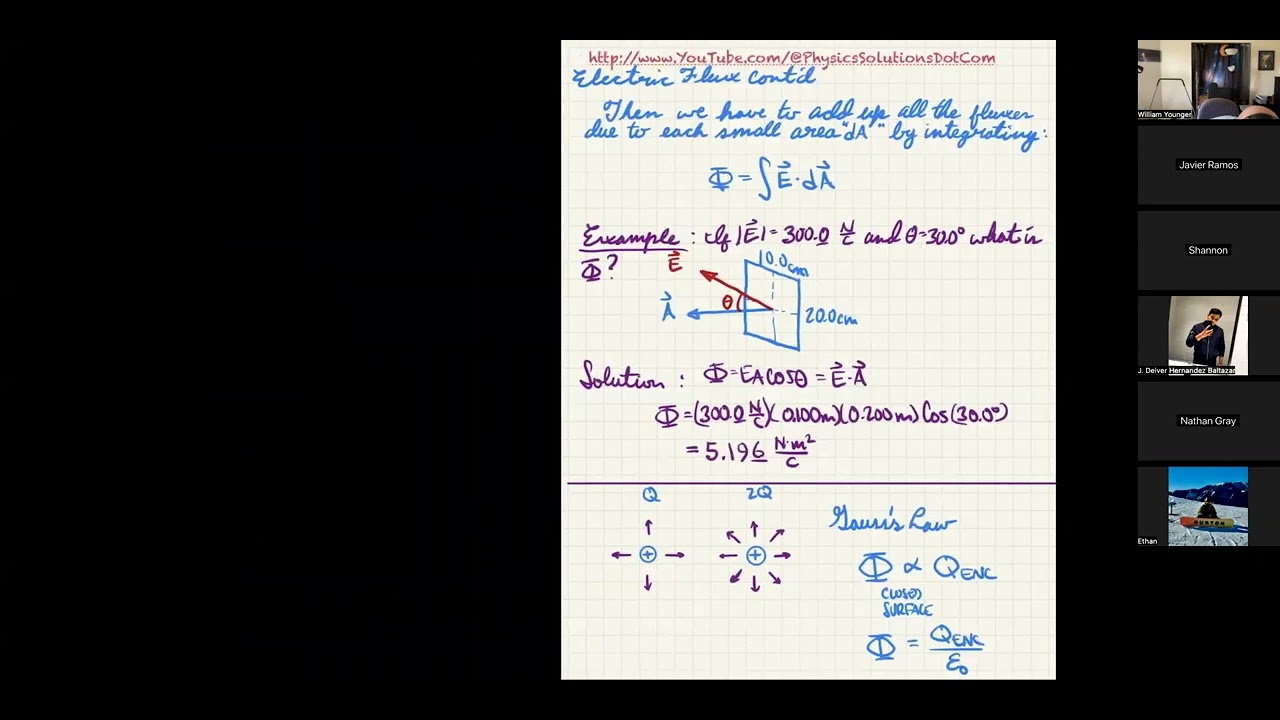 http://www.YouTube.com/@PhysicsSolutionsDotCom
Electric Flux cont'd
Then we have to add up all the fluxes
due to each small area "dA" by integrating:
Φ = ∫ E⃗ · dA⃗
Example : If |E⃗| = 300.0 N/C and θ = 30.0° what is
Φ?
E⃗
10.0cm
θ
A⃗
20.0cm
Solution : Φ = EA COSθ = E⃗ · A⃗
Φ = (300.0 N/C)(0.100m)(0.200m) Cos(30.0°)
= 5.196 N·m²/C
Q
2Q
+
+
Gauss's Law
Φ ∝ QENC
CLOSED
SURFACE
Φ = QENC/ε0
William Younger
Javier Ramos
Shannon
J. Deiver Hernandez Baltazar
Nathan Gray
BURTON
Ethan